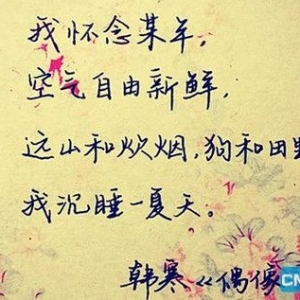 我怀念某年，
空气自由新鲜，
远山和炊烟，狗和田
我沉睡一夏天。
韩寒《偶像
CN